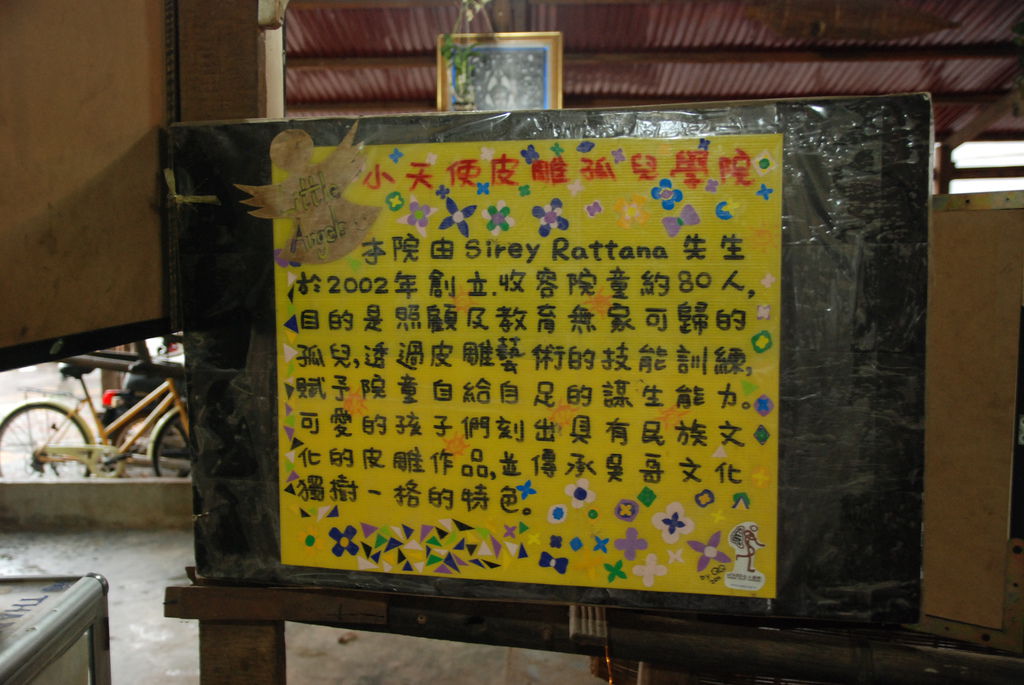 小天使皮雕孤兒學院
Little
Angels
本院由Sirey Rattana 先生
於2002年創立.收容院童約80人,
目的是照顧及教育無家可歸的
孤兒,透過皮雕藝術的技能訓練,
賦予院童自給自足的謀生能力。
可愛的孩子們刻出具有民族文
化的皮雕作品,並傳承吳哥文化
獨樹一格的特色。